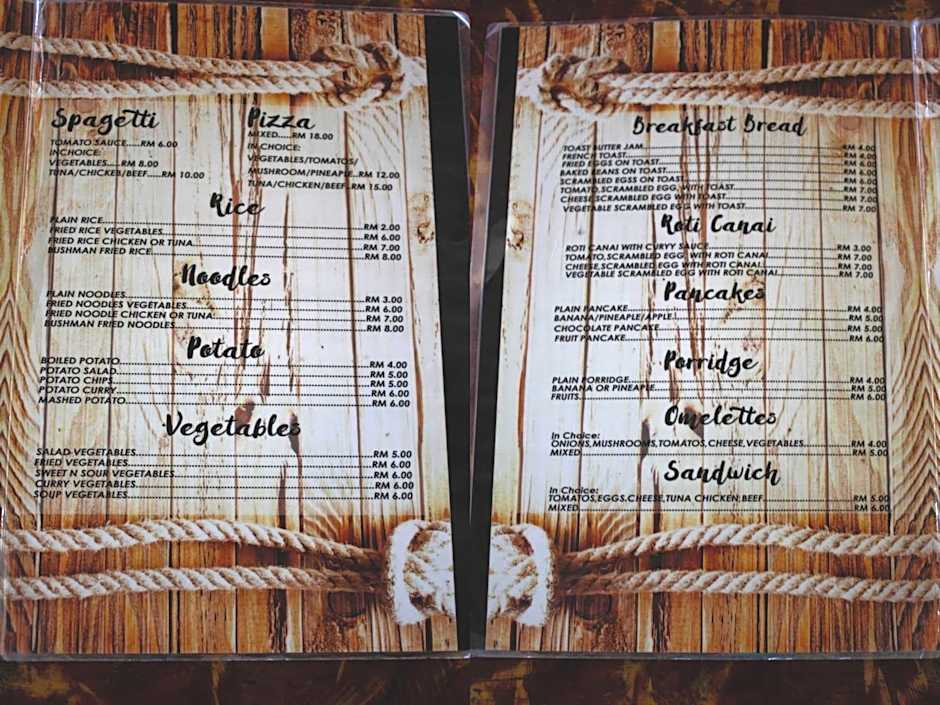 Spagetti
TOMATO SAUCE.....RM 6.00
INCHOICE:
VEGETABLES.....RM 8.00
TUNA/CHICKEN/BEEF.....RM 10.00
Pizza
MIXED.....RM 18.00
IN CHOICE:
VEGETABLES/TOMATOS/
MUSHROOM/PINEAPLE...RM 12.00
TUNA/CHICKEN/BEEF..RM 15.00
Rice
PLAIN RICE RM 2.00
FRIED RICE VEGETABLES RM 6.00
FRIED RICE CHICKEN OR TUNA RM 7.00
BUSHMAN FRIED RICE RM 8.00
Noodles
PLAIN NOODLES RM 3.00
FRIED NOODLES VEGETABLES RM 6.00
FRIED NOODLE CHICKEN OR TUNA RM 7.00
BUSHMAN FRIED NOODLES RM 8.00
Potato
BOILED POTATO RM 4.00
POTATO SALAD RM 5.00
POTATO CHIPS RM 5.00
POTATO CURRY RM 6.00
MASHED POTATO RM 6.00
Vegetables
SALAD VEGETABLES RM 5.00
FRIED VEGETABLES RM 6.00
SWEET N SOUR VEGETABLES RM 6.00
CURRY VEGETABLES RM 6.00
SOUP VEGETABLES RM 6.00
Breakfast Bread
TOAST BUTTER JAM RM 4.00
FRENCH TOAST RM 4.00
FRIED EGGS ON TOAST RM 6.00
BAKED BEANS ON TOAST RM 6.00
SCRAMBLED EGSS ON TOAST RM 6.00
TOMATO,SCRAMBLED EGG WITH TOAST RM 7.00
CHEESE,SCRAMBLED EGG WITH TOAST RM 7.00
VEGETABLE SCRAMBLED EGG WITH TOAST RM 7.00
Roti Canai
ROTI CANAI WITH CURYY SAUCE RM 3.00
TOMATO,SCRAMBLED EGG WITH ROTI CANAI RM 7.00
CHEESE,SCRAMBLED EGG WITH ROTI CANAI RM 7.00
VEGETABLE SCRAMBLED EGG WITH ROTI CANAI RM 7.00
Pancakes
PLAIN PANCAKE RM 4.00
BANANA/PINEAPLE/APPLE RM 5.00
CHOCOLATE PANCAKE RM 5.00
FRUIT PANCAKE RM 6.00
Porridge
PLAIN PORRIDGE RM 4.00
BANANA OR PINEAPLE RM 5.00
FRUITS RM 6.00
Omelettes
In Choice:
ONIONS,MUSHROOMS,TOMATOS,CHEESE,VEGETABLES RM 4.00
MIXED RM 5.00
Sandwich
In Choice:
TOMATOS,EGGS,CHEESE,TUNA CHICKEN,BEEF RM 5.00
MIXED RM 6.00